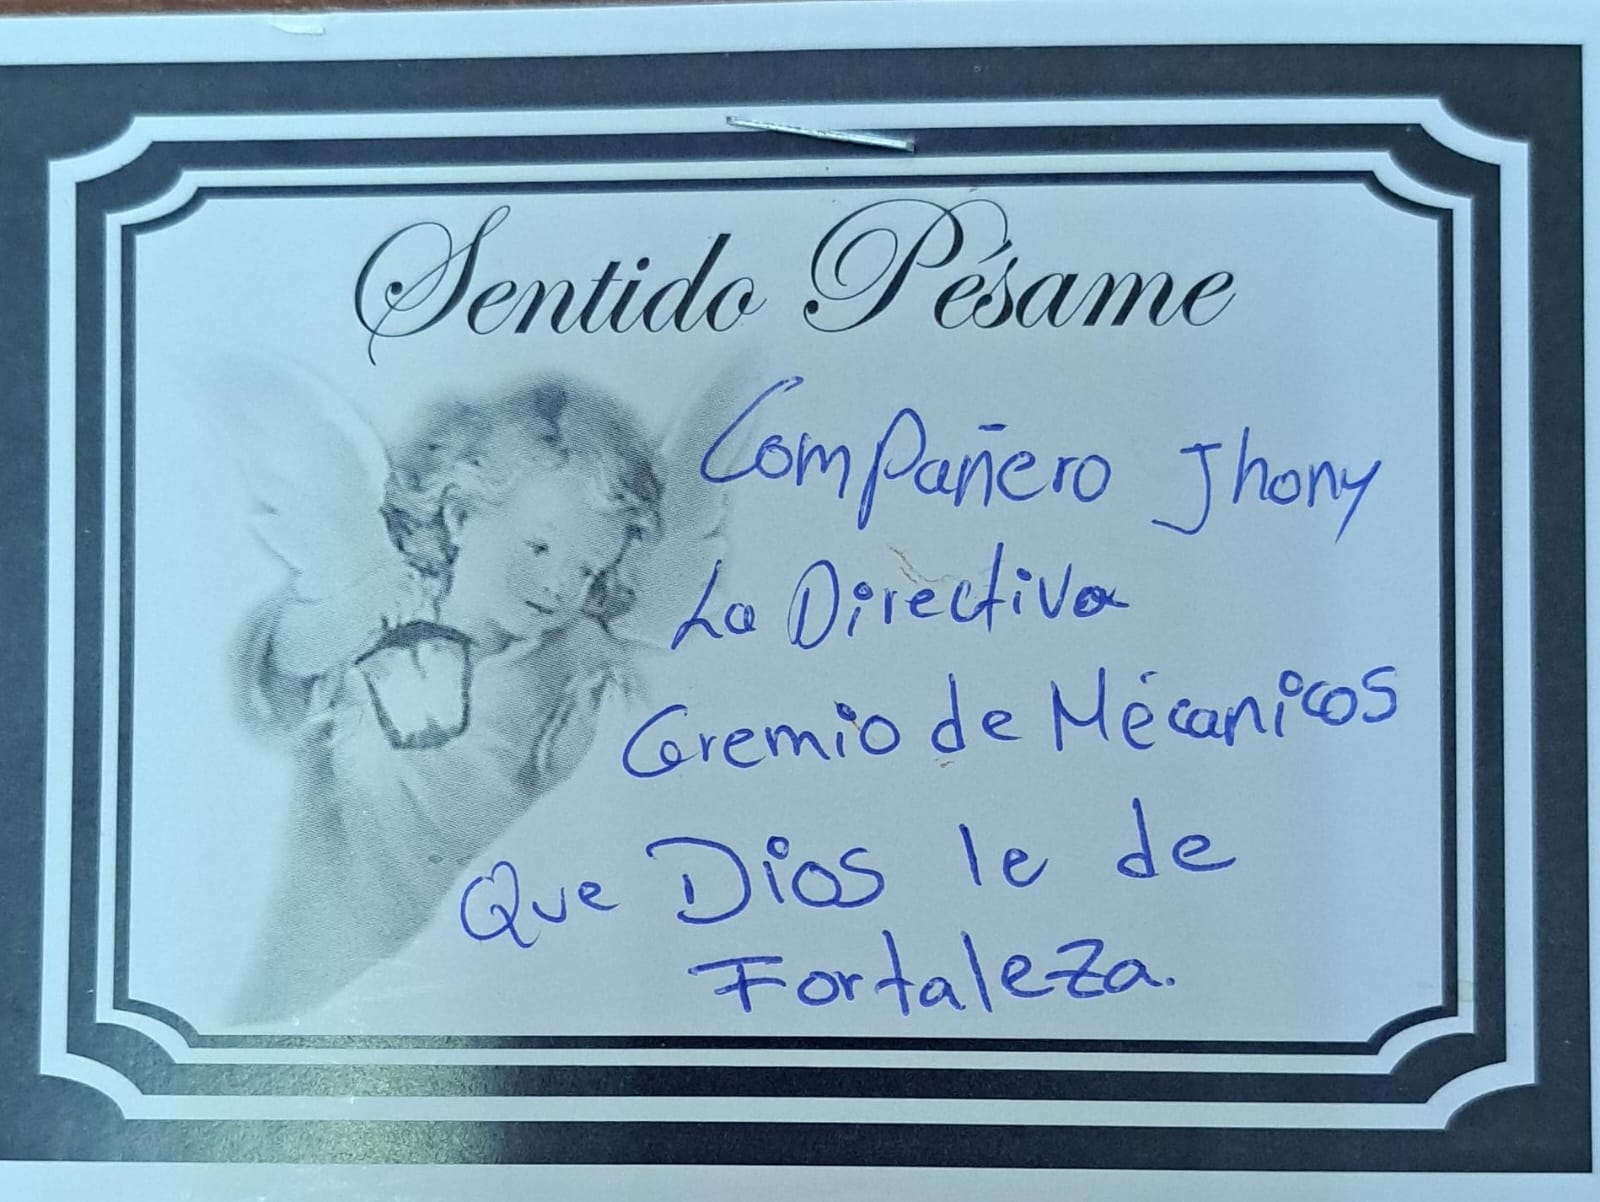 Sentido Pésame
Compañero Jhony
La Directiva
Gremio de Mécanicos
Que Dios le de
Fortaleza.